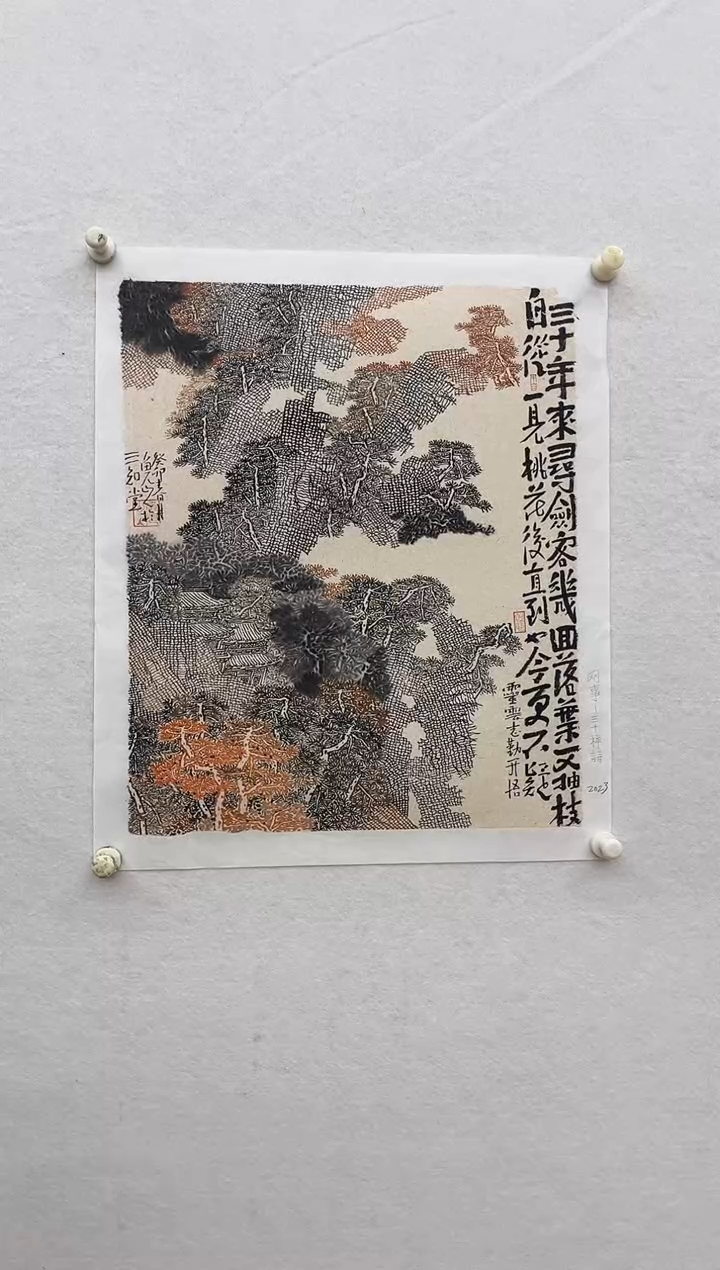 三十年來尋劍客幾回落葉又抽枝
自從一見桃花後直到如今更不疑
靈雲志勤開悟
2023
三知堂